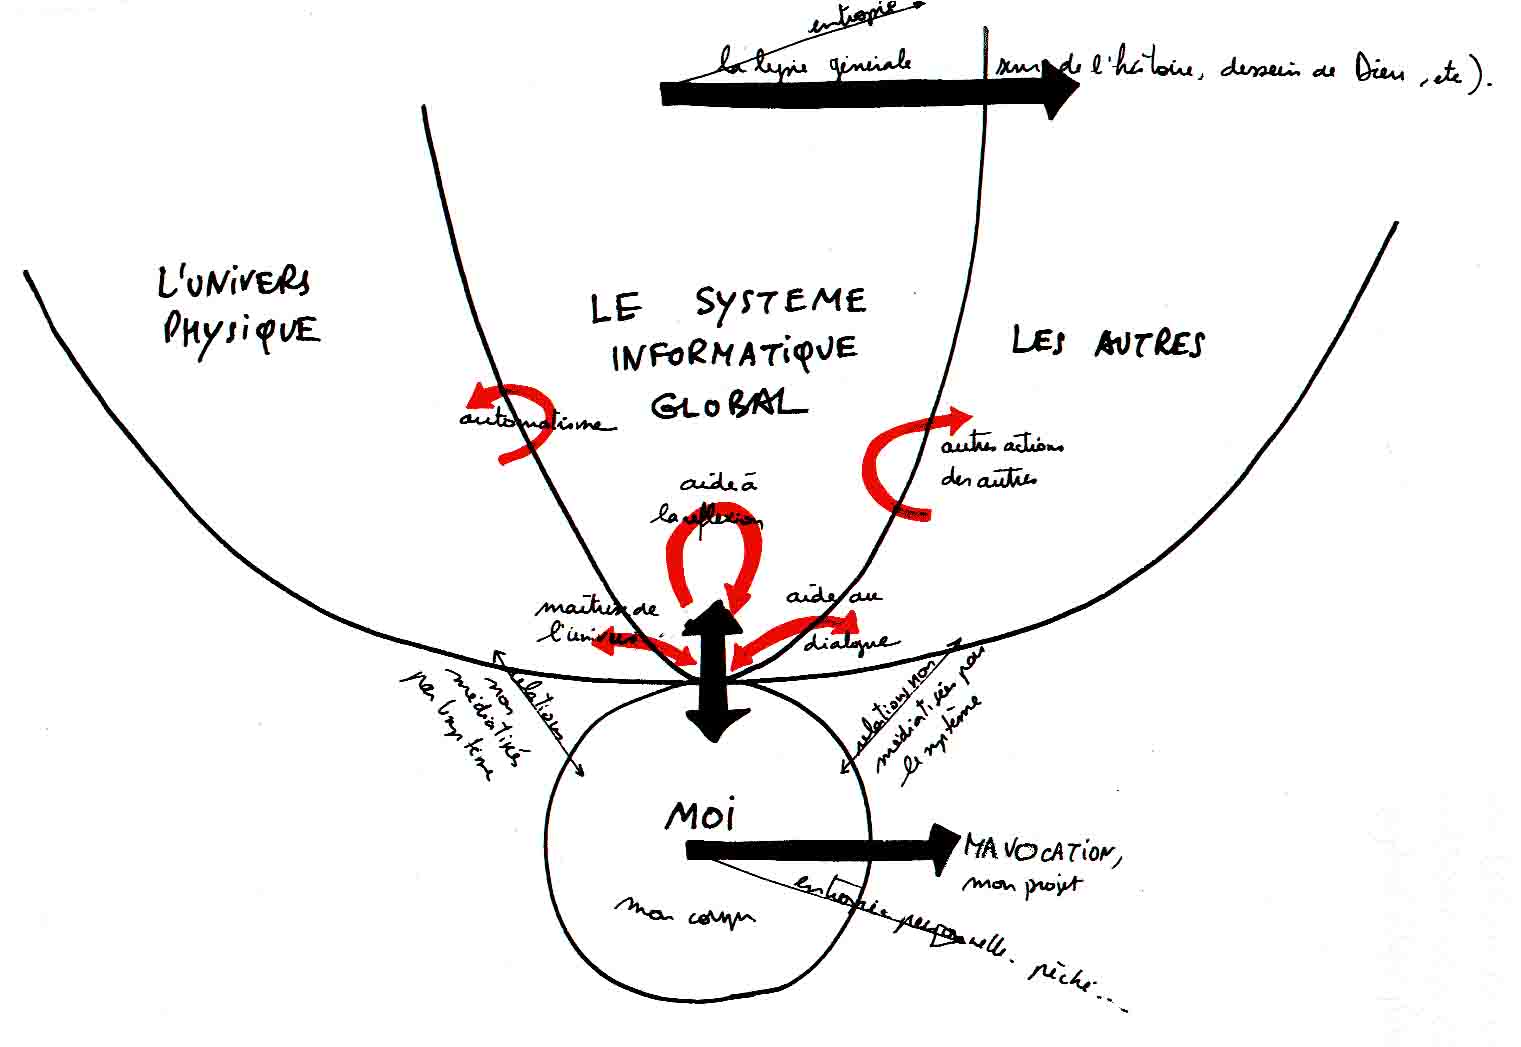 entropie
générale
de l'histoire, dessein de Dieu, etc).
L'UNIVERS
PHYSIQUE
LE SYSTEME
INFORMATIQUE
GLOBAL
LES AUTRES
automatisme
autres actions
des autres
aide à
la reflexion
maîtrise de
l'univers
aide au
dialogue
relations
non
médiatisés
par
système
relations non
médiatisées par
le système
MOI
MA VOCATION,
mon projet
mon corps
entropie personnelle. péché...